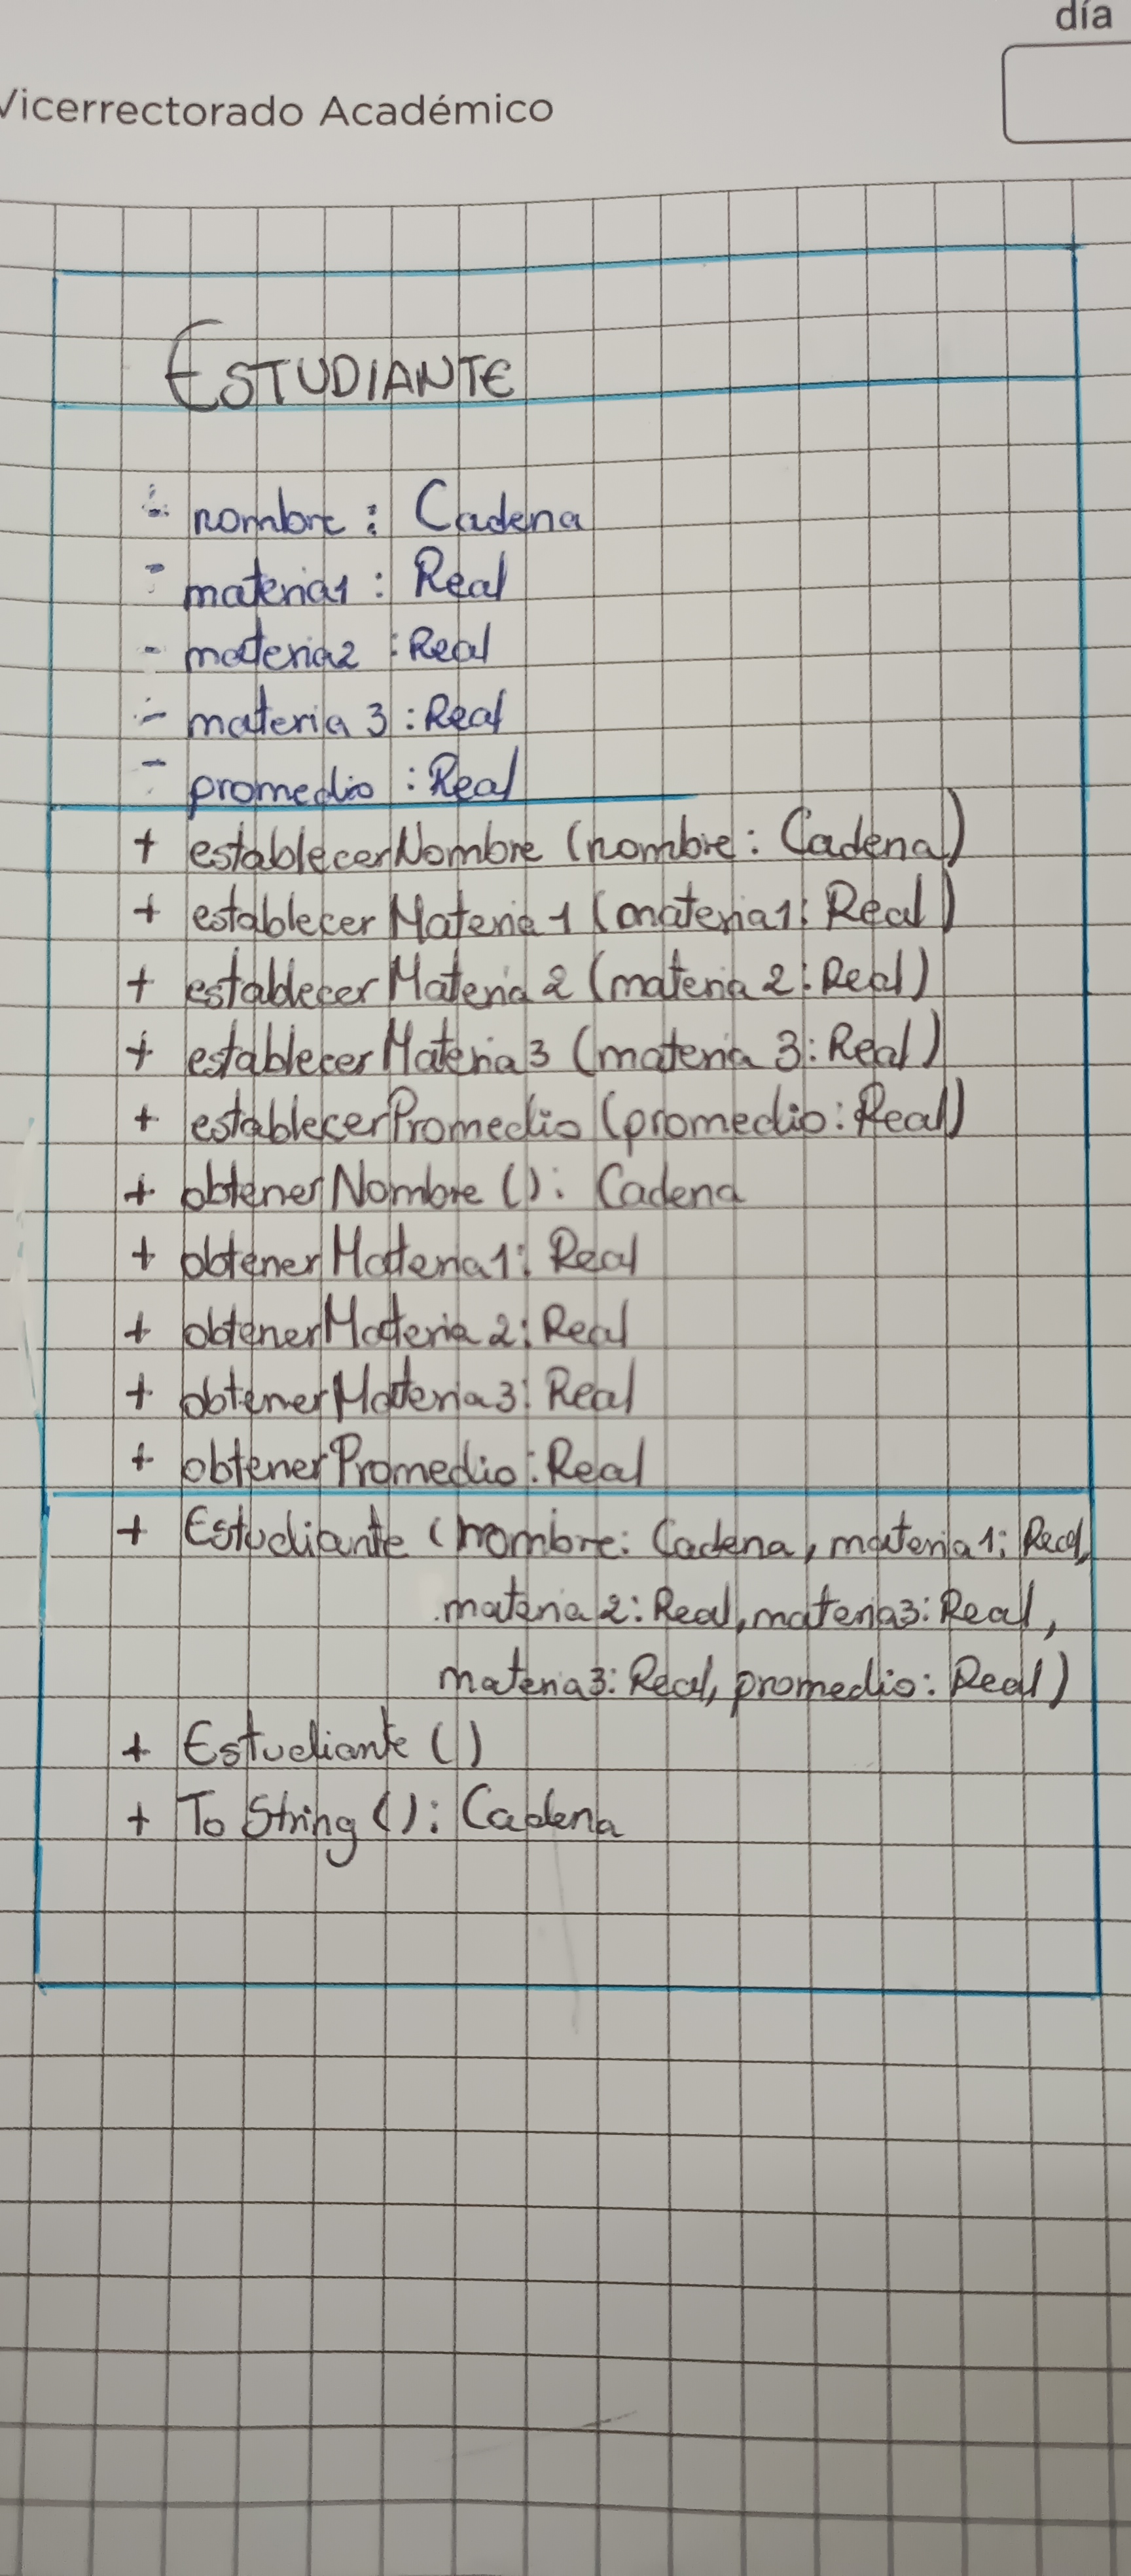 día
Vicerrectorado Académico
ESTUDIANTE
- nombre : Cadena
- materia1 : Real
- materia2 : Real
- materia 3 : Real
- promedio : Real
+ establecerNombre (nombre : Cadena)
+ establecerMateria 1 (materia1 : Real)
+ establecerMateria 2 (materia 2 : Real)
+ establecerMateria 3 (materia 3 : Real)
+ establecerPromedio (promedio : Real)
+ obtenerNombre () : Cadena
+ obtenerMateria1 : Real
+ obtenerMateria 2 : Real
+ obtenerMateria 3 : Real
+ obtenerPromedio : Real
+ Estudiante (nombre : Cadena, materia 1 : Real,
materia 2 : Real, materia3 : Real,
materia3 : Real, promedio : Real)
+ Estudiante ()
+ To String () : Cadena